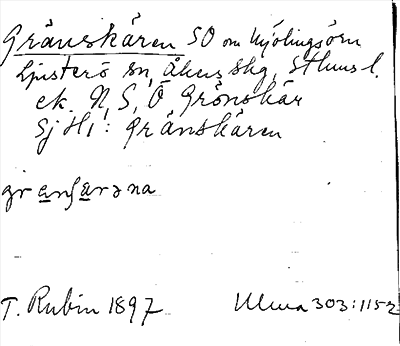 Gränskären SO om Mjölingsörn
Ljusterö sn, Åkers skg, Sthms l.
ek. N, S, Ö Grönskär
Sj H1: Gränskären
granʃarəna
T. Rubin 1897 Ulma 303:1152